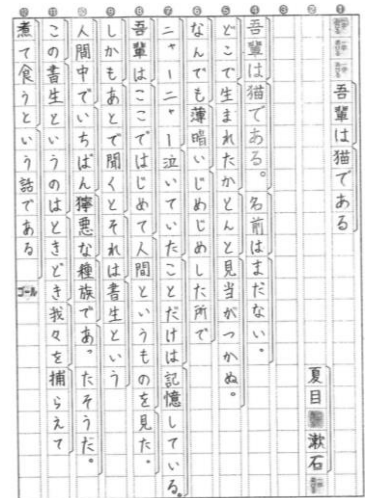 ① 吾輩は猫である
② 夏目漱石
③
④ 吾輩は猫である。名前はまだない。
⑤ どこで生まれたかとんと見当がつかぬ。
⑥ なんでも薄暗いじめじめした所で
⑦ ニャーニャー泣いていたことだけは記憶している。
⑧ 吾輩はここではじめて人間というものを見た。
⑨ しかもあとで聞くとそれは書生という
⑩ 人間中でいちばん獰悪な種族であったそうだ。
⑪ この書生というのはときどき我々を捕らえて
⑫ 煮て食うという話である ゴール